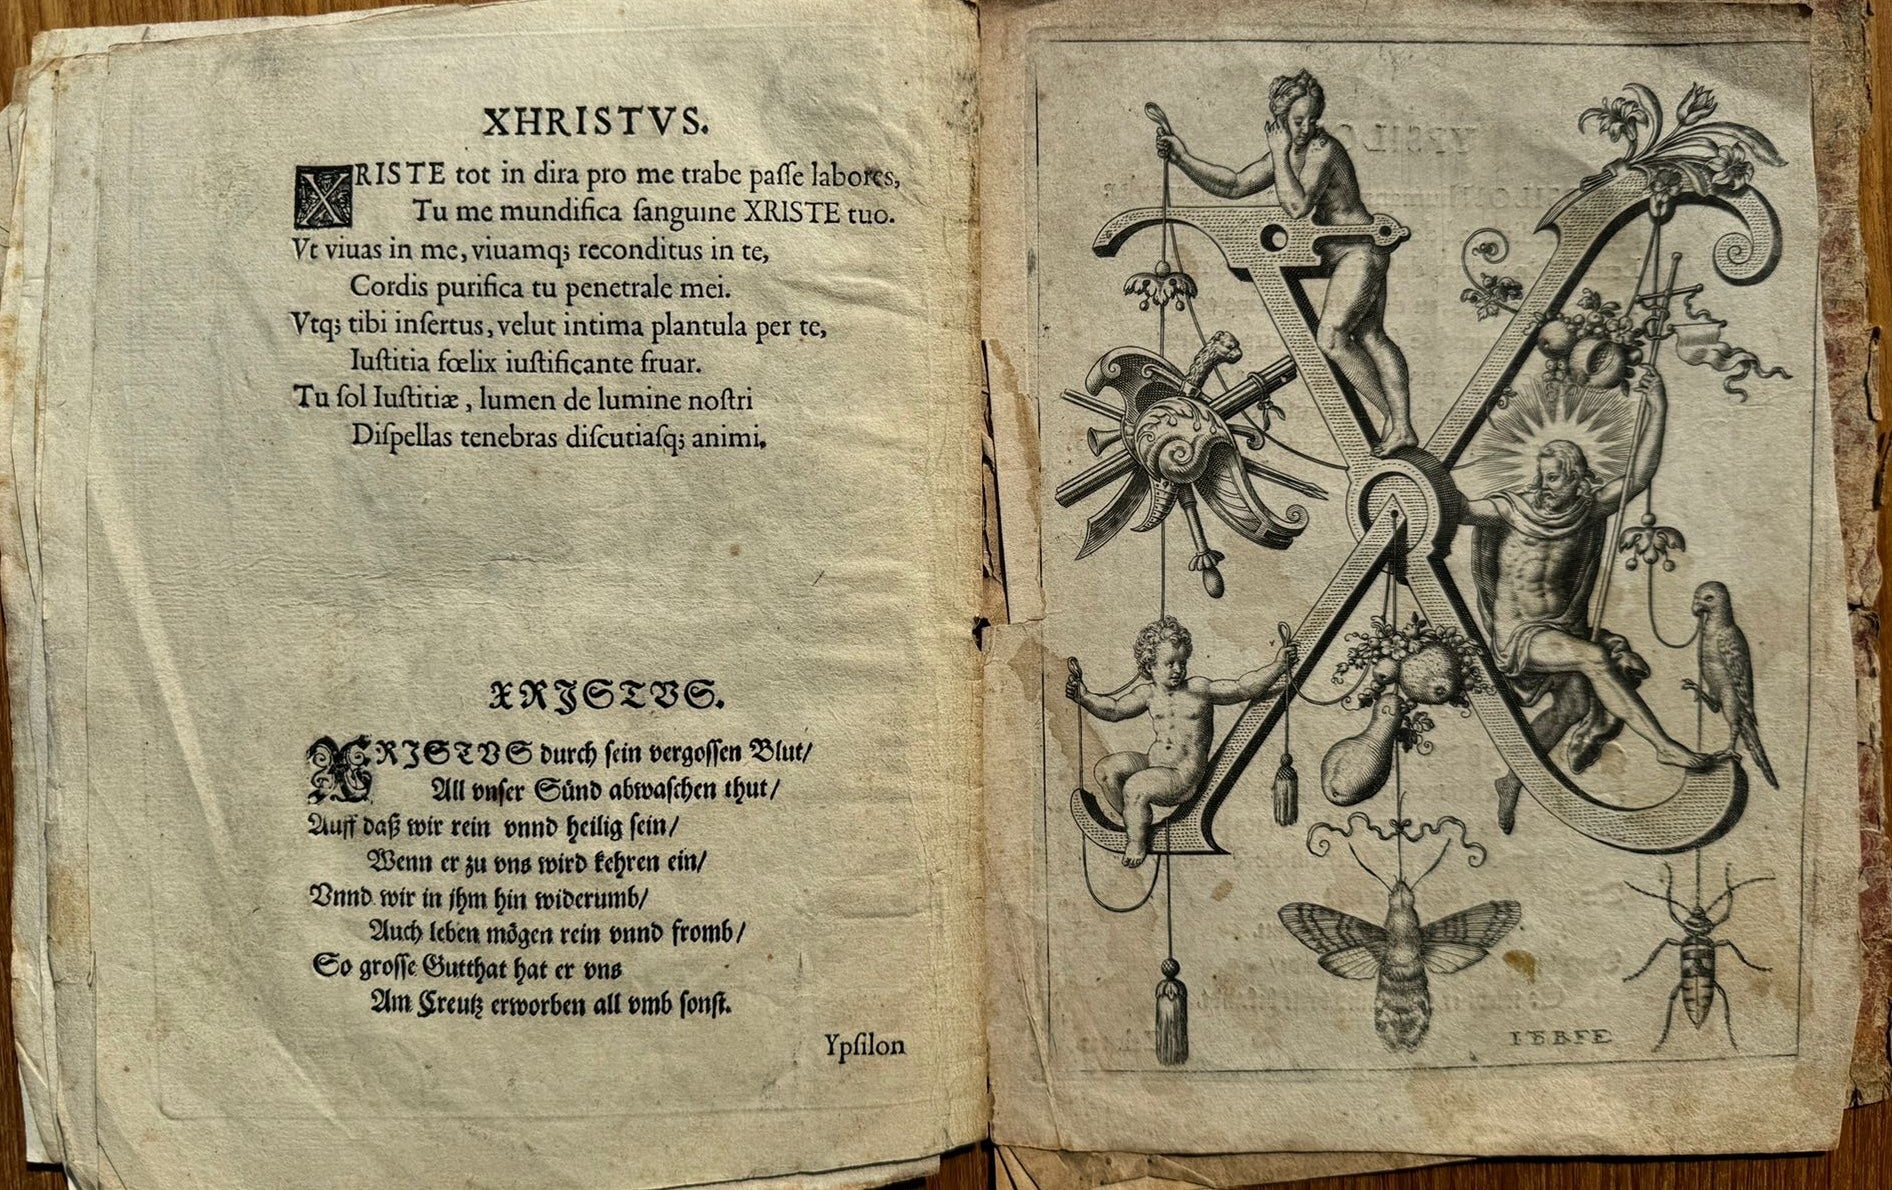 XHRISTVS.
XRISTE tot in dira pro me trabe paſſe labores,
Tu me mundifica ſanguine XRISTE tuo.
Vt viuas in me, viuamq; reconditus in te,
Cordis purifica tu penetrale mei.
Vtq; tibi inſertus, velut intima plantula per te,
Iuſtitia fœlix iuſtificante fruar.
Tu ſol Iuſtitiæ, lumen de lumine noſtri
Diſpellas tenebras diſcutiaſq; animi.
XRISTVS.
XRISTVS durch ſein vergoſſen Blut/
All vnſer Sünd abwaſchen thut/
Auff daß wir rein vnnd heilig ſein/
Wenn er zu vns wird kehren ein/
Vnnd wir in jhm hin widerumb/
Auch leben mögen rein vnnd fromb/
So groſſe Gutthat hat er vns
Am Creutz erworben all vmb ſonſt.
Ypſilon
X
I B B F E